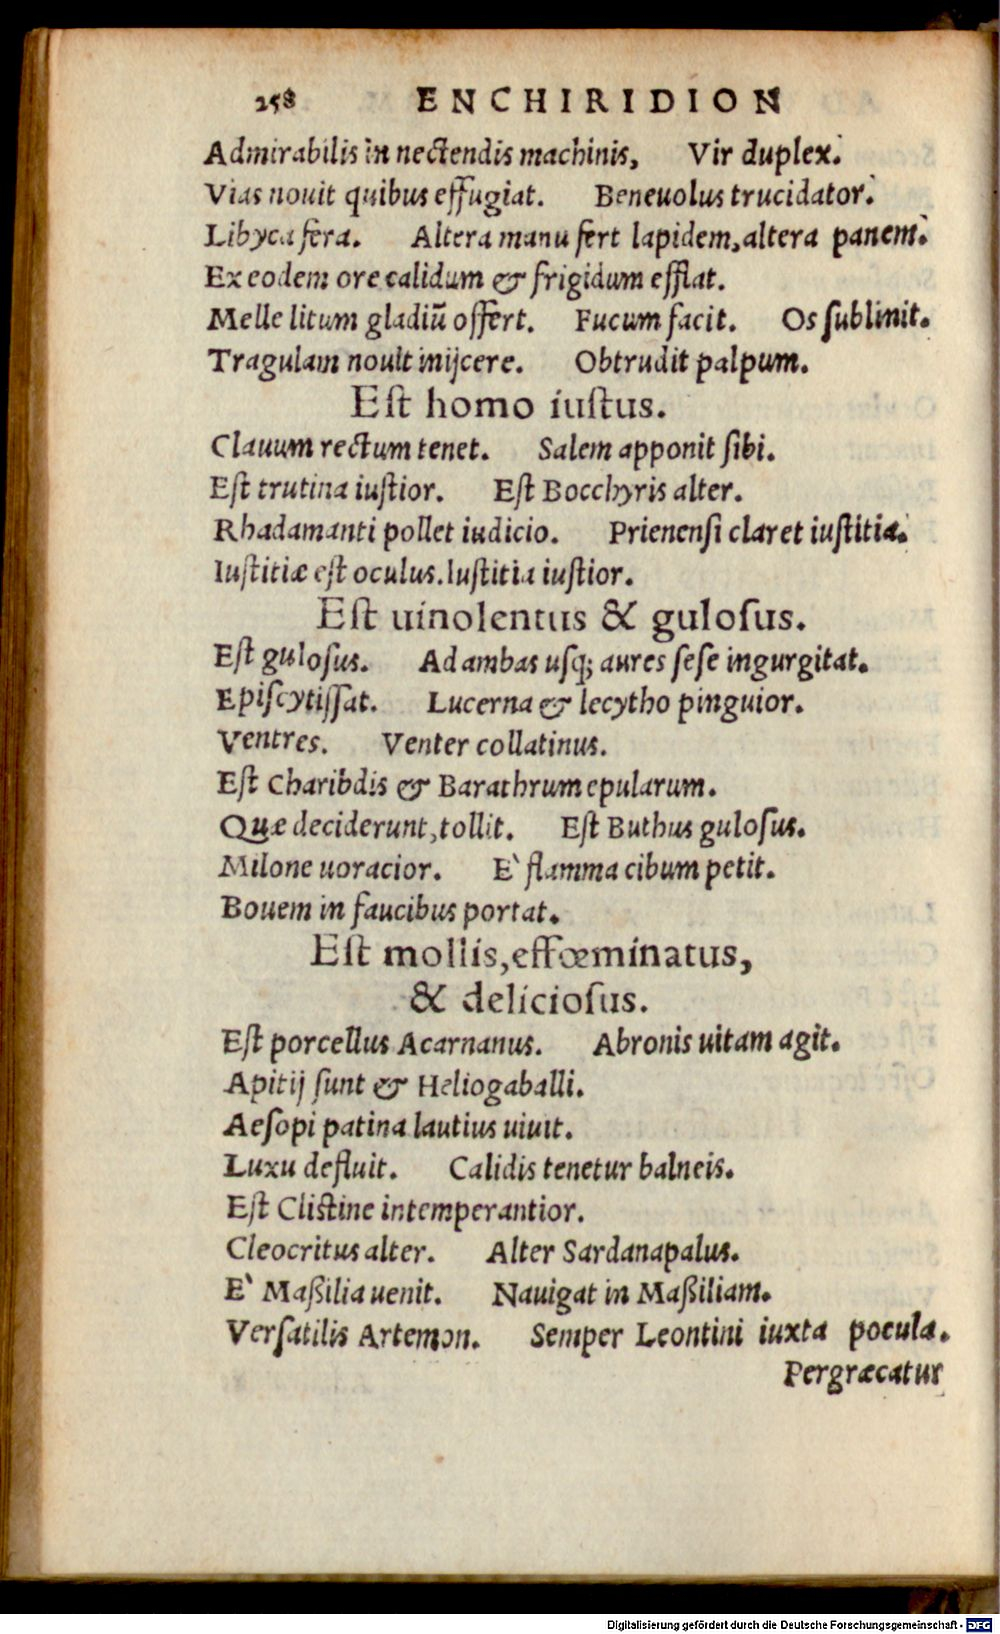 258 ENCHIRIDION
Admirabilis in nectendis machinis, Vir duplex.
Vias nouit quibus effugiat. Beneuolus trucidator.
Libyca fera. Altera manu fert lapidem, altera panem.
Ex eodem ore calidum & frigidum efflat.
Melle litum gladiū offert. Fucum facit. Os sublinit.
Tragulam nouit inijcere. Obtrudit palpum.
Est homo iustus.
Clauum rectum tenet. Salem apponit sibi.
Est trutina iustior. Est Bocchyris alter.
Rhadamanti pollet iudicio. Prienensi claret iustitia.
Iustitiæ est oculus. Iustitia iustior.
Est uinolentus & gulosus.
Est gulosus. Ad ambas usq; aures sese ingurgitat.
Episcytissat. Lucerna & lecytho pinguior.
Ventres. Venter collatinus.
Est Charibdis & Barathrum epularum.
Quæ deciderunt, tollit. Est Buthus gulosus.
Milone uoracior. E` flamma cibum petit.
Bouem in faucibus portat.
Est mollis, effœminatus,
& deliciosus.
Est porcellus Acarnanus. Abronis uitam agit.
Apitij sunt & Heliogaballi.
Aesopi patina lautius uiuit.
Luxu defluit. Calidis tenetur balneis.
Est Clistine intemperantior.
Cleocritus alter. Alter Sardanapalus.
E` Maßilia uenit. Nauigat in Maßiliam.
Versatilis Artemon. Semper Leontini iuxta pocula.
Pergræcatur
Digitalisierung gefördert durch die Deutsche Forschungsgemeinschaft - DFG